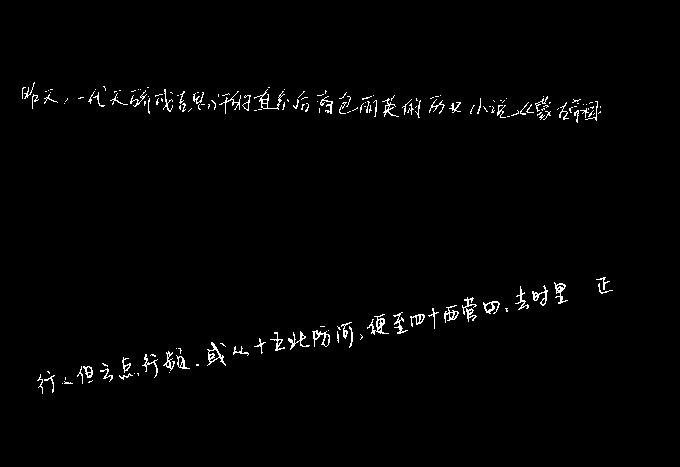 昨天,一代天骄成吉思汗的直系后裔包丽英的历史小说《蒙古帝国
行人但云点行频.或从十五北防河,便至四十西营田.去时里正